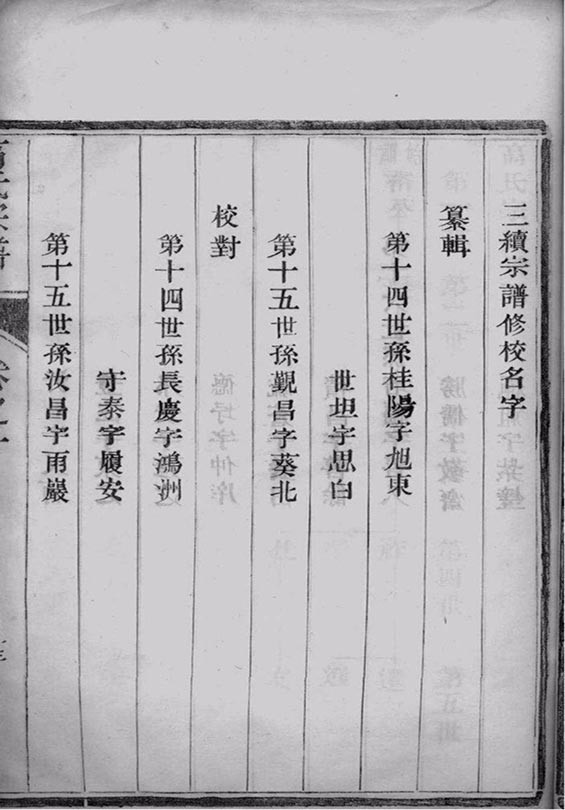 三續宗譜修校名字
纂輯
第十四世孫桂陽字旭東
世坦字思白
第十五世孫觀昌字葵北
校對
第十四世孫長慶字鴻洲
守泰字履安
第十五世孫汝昌字雨巖